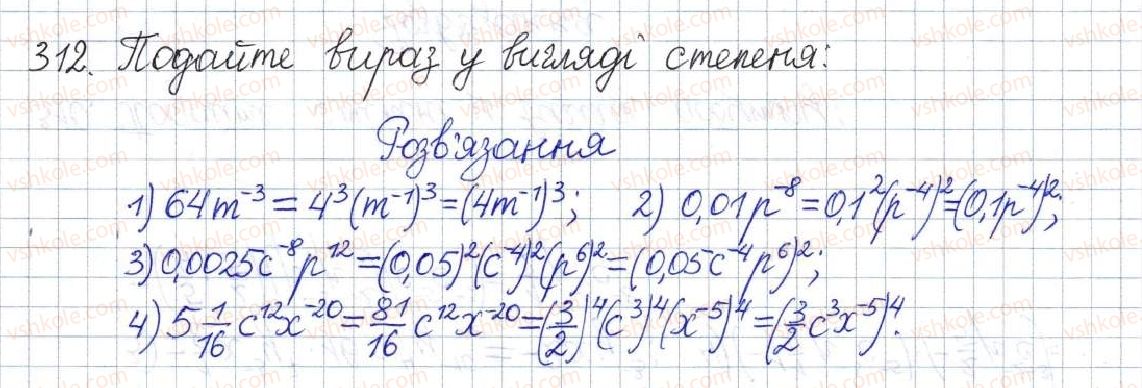 312. Подайте вираз у вигляді степеня:
Розв'язання
1) 64m⁻³ = 4³(m⁻¹)³ = (4m⁻¹)³; 2) 0,01p⁻⁸ = 0,1²(p⁻⁴)² = (0,1p⁻⁴)²;
3) 0,0025c⁻⁸p¹² = (0,05)²(c⁻⁴)²(p⁶)² = (0,05c⁻⁴p⁶)²;
4) 5 1/16 c¹²x⁻²⁰ = 81/16 c¹²x⁻²⁰ = (3/2)⁴(c³)⁴(x⁻⁵)⁴ = (3/2 c³x⁻⁵)⁴.